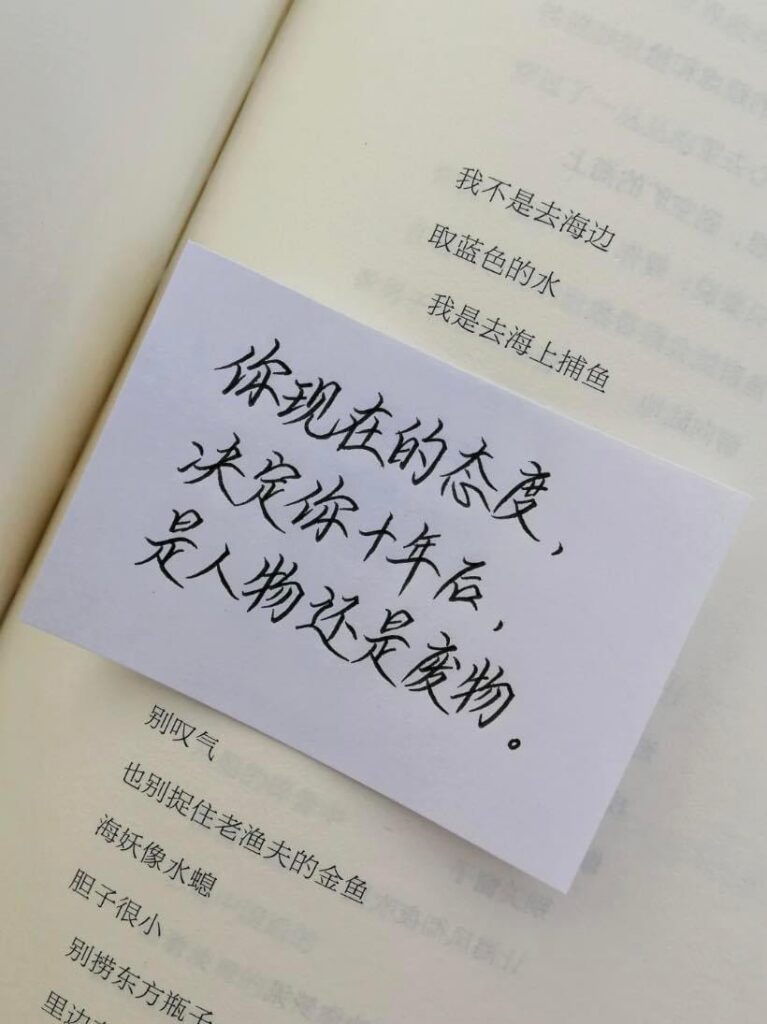 我不是去海边
取蓝色的水
我是去海上捕鱼
你现在的态度，
决定你十年后，
是人物还是废物。
别叹气
也别捉住老渔夫的金鱼
海妖像水螅
胆子很小
别捞东方瓶子
里边